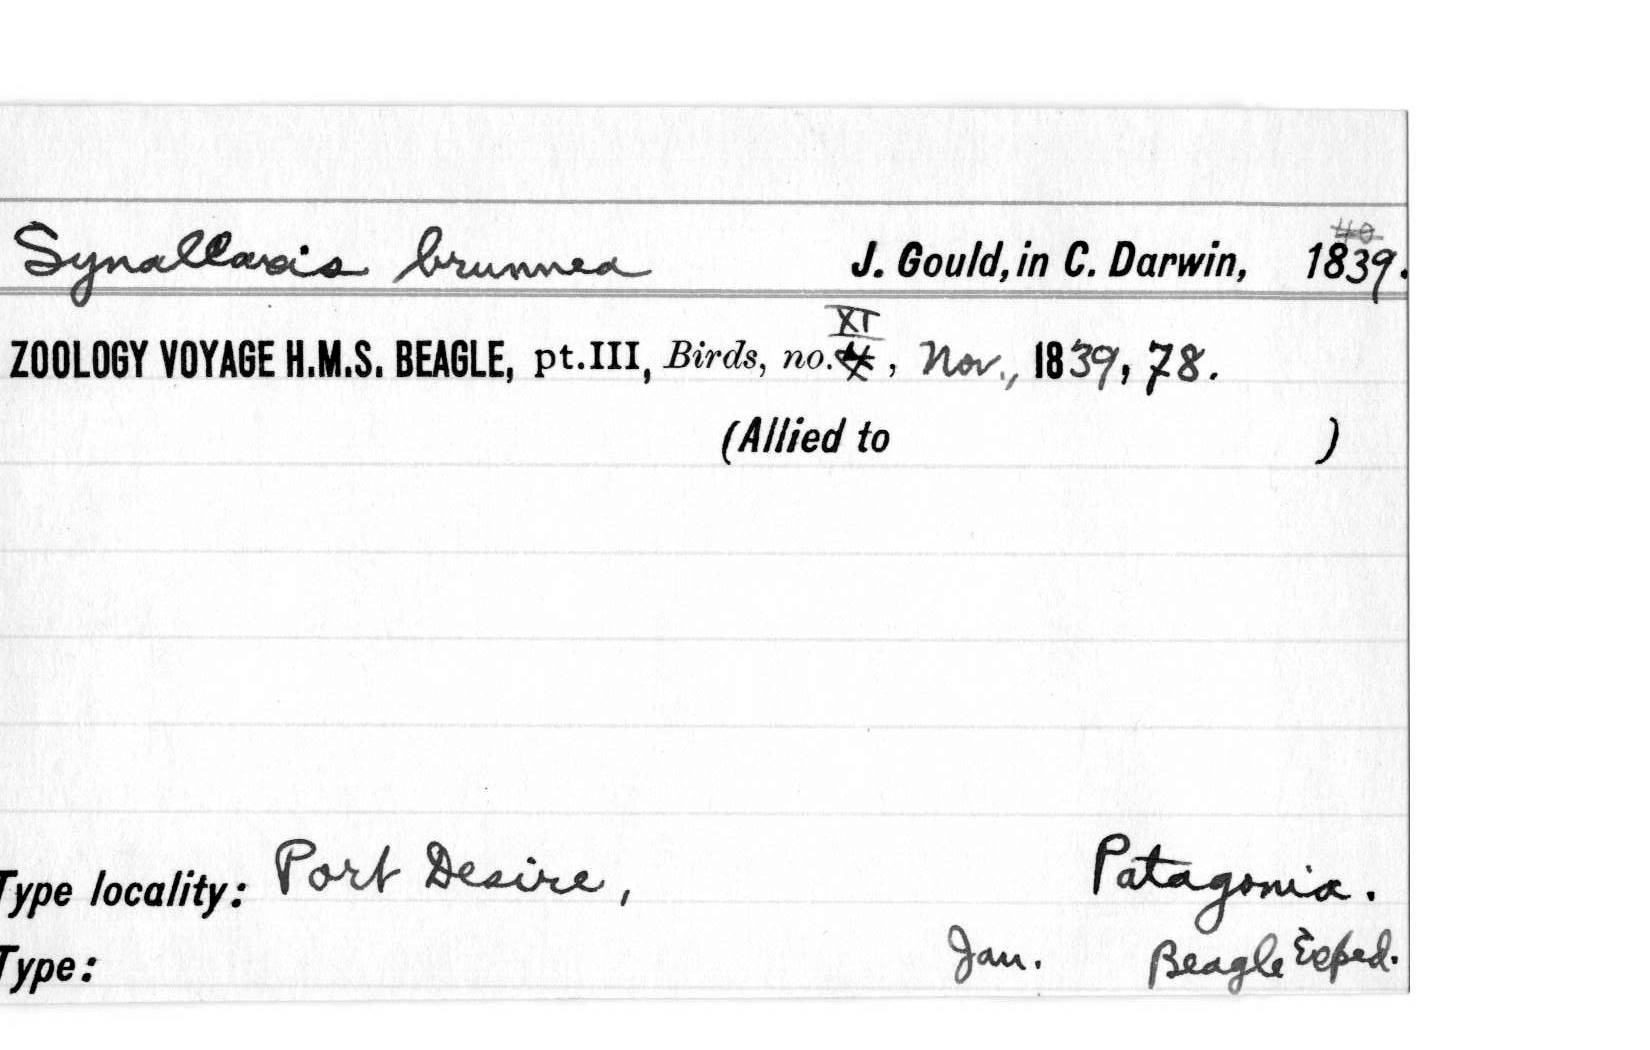 Synallaxis brunnea J. Gould, in C. Darwin, 1839.
XI
ZOOLOGY VOYAGE H.M.S. BEAGLE, pt.III, Birds, no. , Nov., 1839, 78.
(Allied to )
Type locality: Port Desire, Patagonia.
Type: Jan. Beagle Exped.